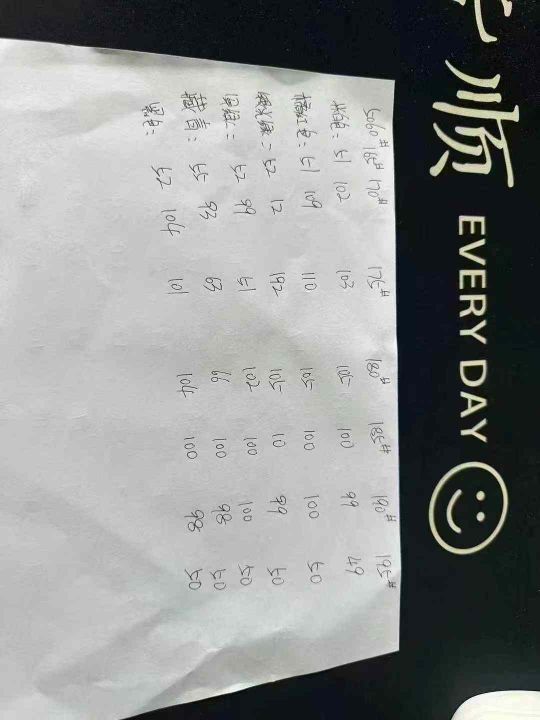 顺
EVERY DAY
5060# 165# 170# 175# 180# 185# 190# 195#
51 102 103 105 100 99 49
橘红色: 51 109 110 105 100 100 50
52 12 192 105 10 99 50
52 99 51 102 100 100 50
藏青: 55 93 63 66 100 98 50
黑色: 52 104 101 104 100 98 50